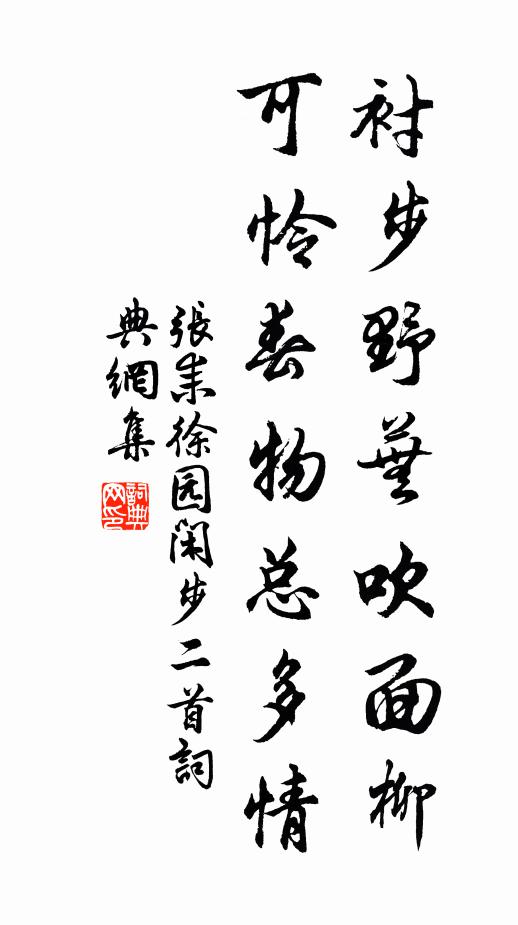 衬步野芜吹面柳
可怜春物总多情
張耒徐园闲步二首詞
典網集
詞典网印